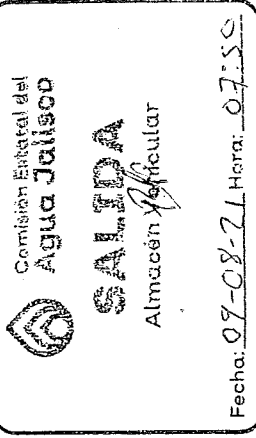 Comisión Estatal del
Agua Jalisco
SALIDA
Almacén Vehicular
Fecha: 09-08-21 Hora: 07:50